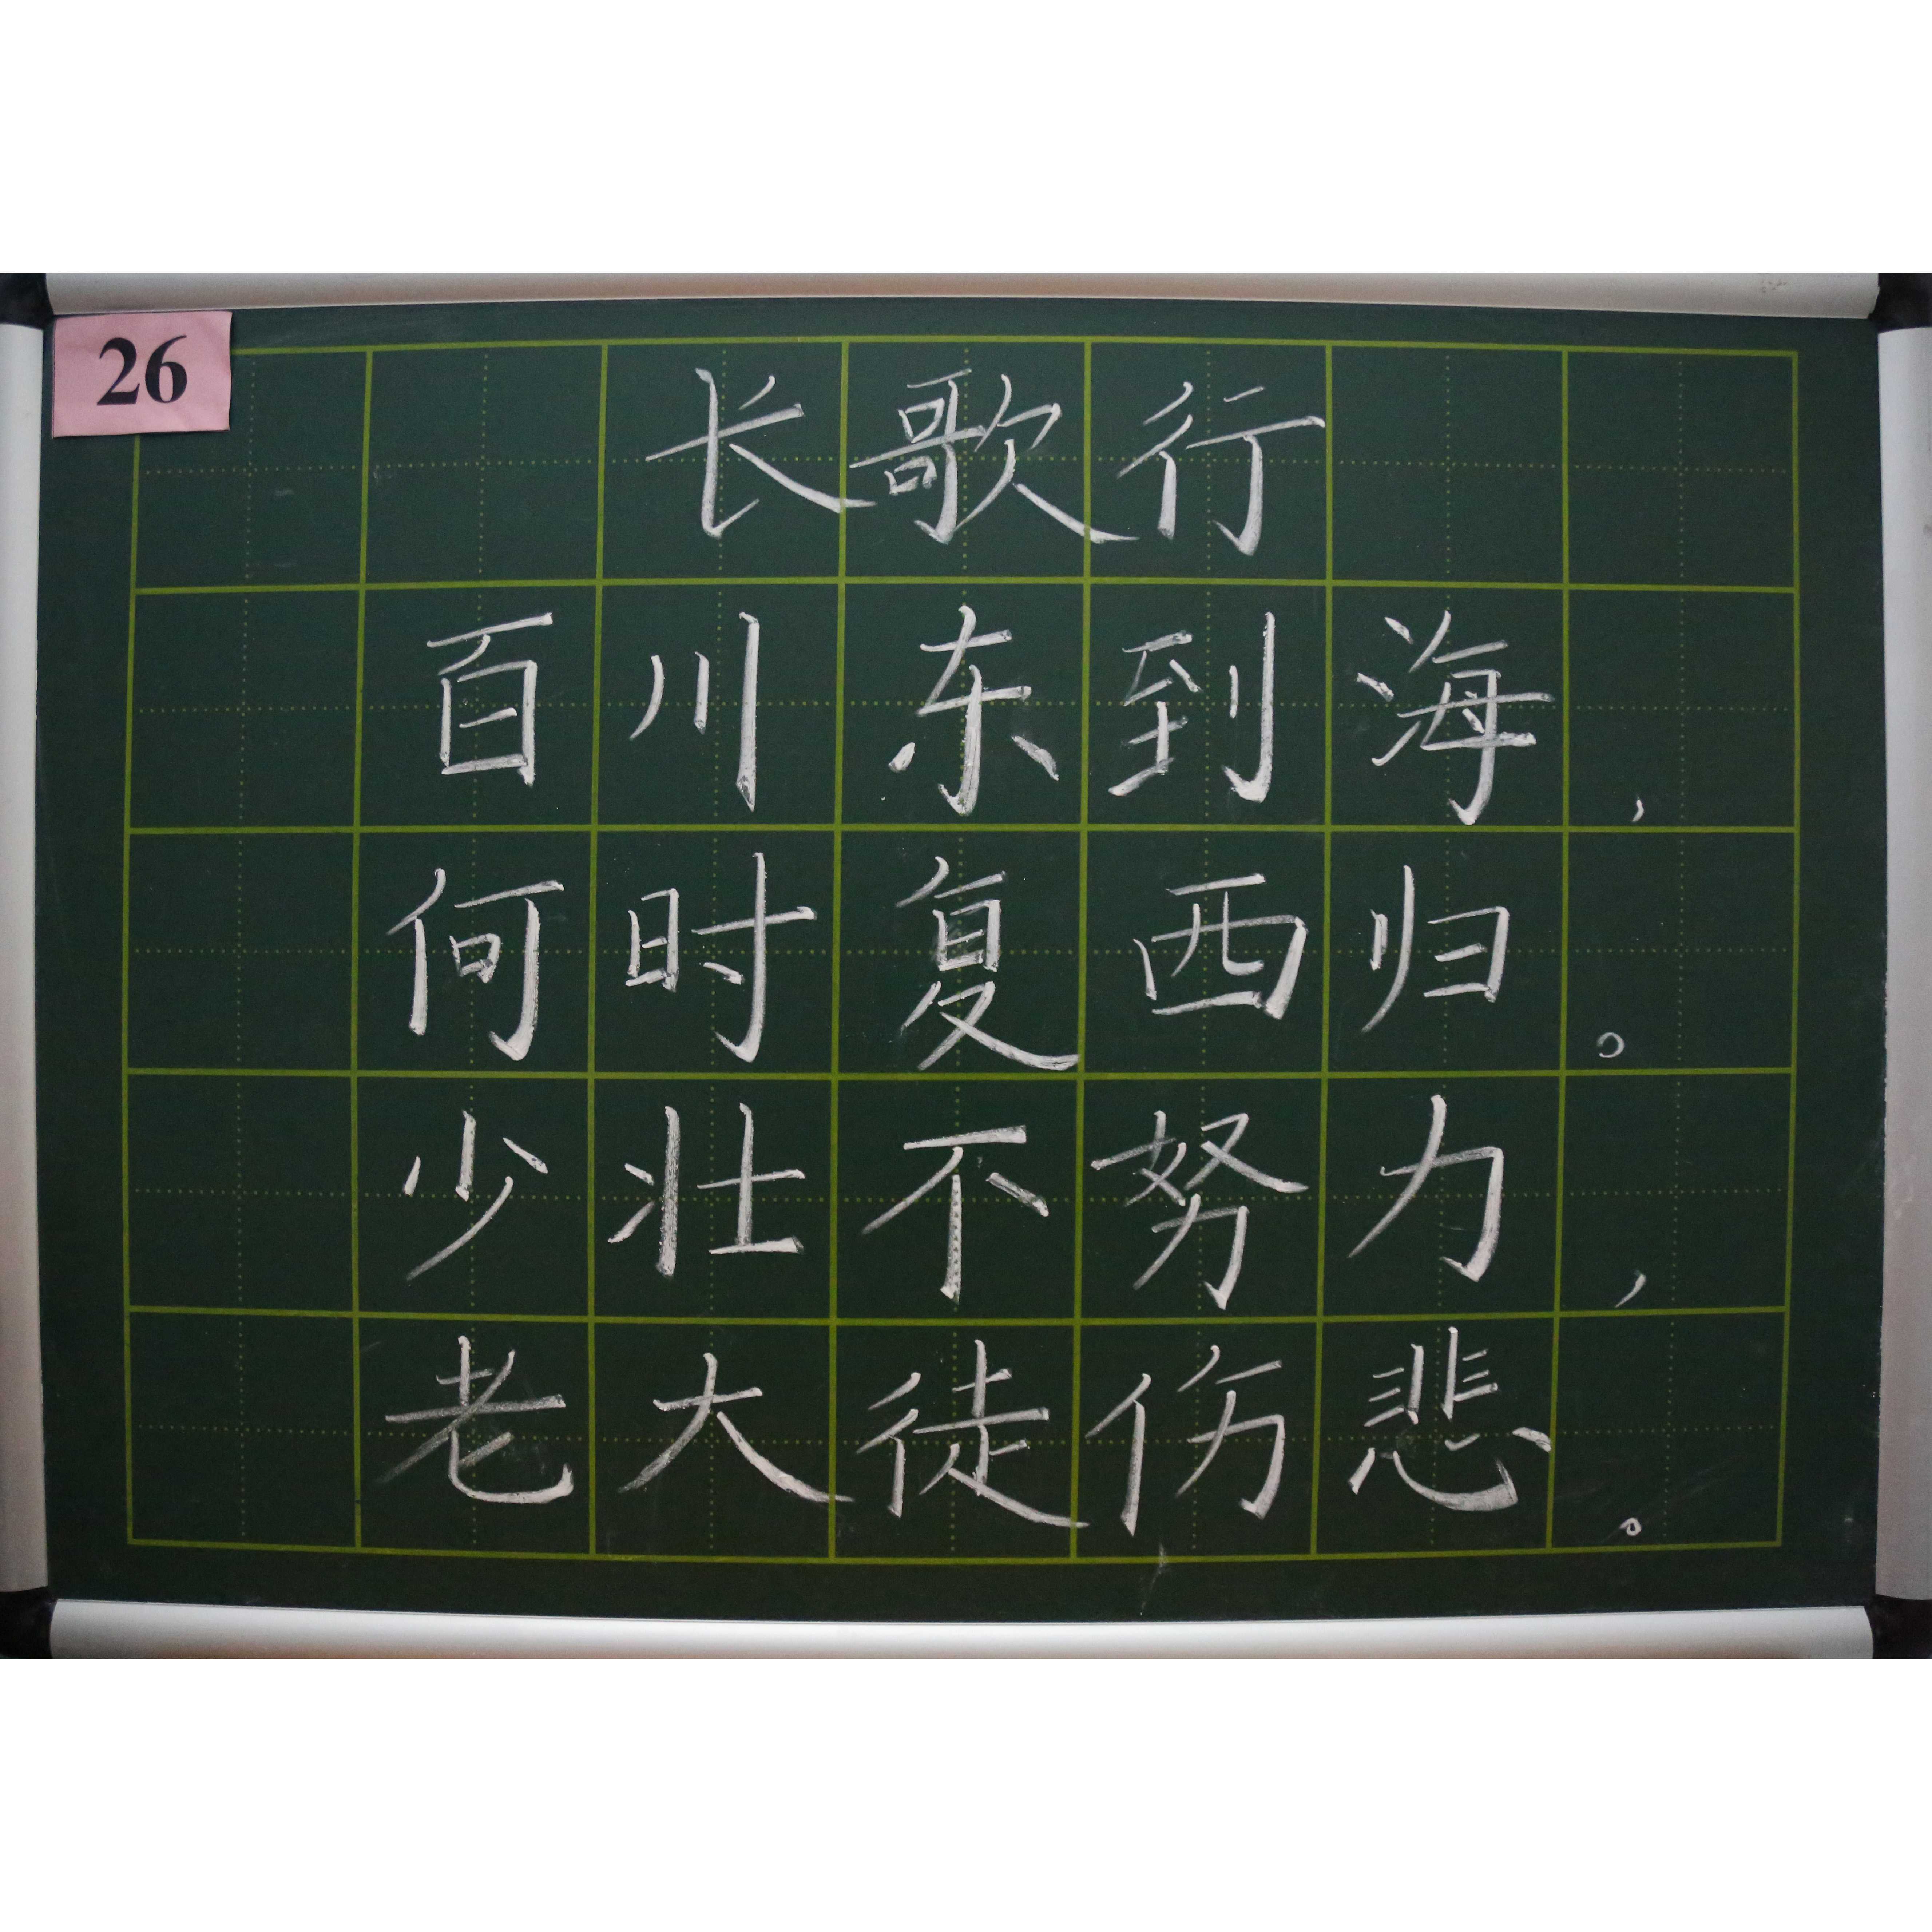 26
长歌行
百川东到海，
何时复西归。
少壮不努力，
老大徒伤悲。